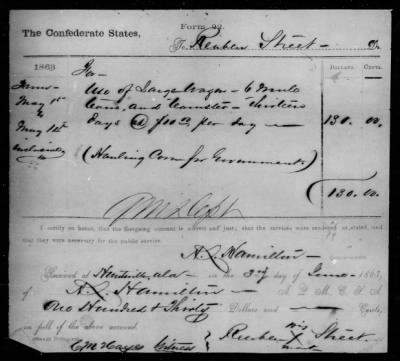 Form 22.
The Confederate States,
To Reuben Street Dr.
1863 DOLLARS. CENTS.
For
Use of Large Wagon - 6 Mule
May 1st Team and Teamster - Thirteen
to days @ $10.00 per day 130. 00.
May
inclusive (Hauling Corn for Government)
130. 00.
I certify on honor, that the foregoing account is correct and just; that the services were rendered as stated, and
they were necessary for the public service.
A. Hamilton
Received at Huntsville, Ala in the 3rd day of June 1863,
of A. Hamilton A. Q. M. C. S. A
One Hundred & Thirty Dollars and Cents,
in full of the above account.
his
Reuben X Street
mark
C M Hays Witness